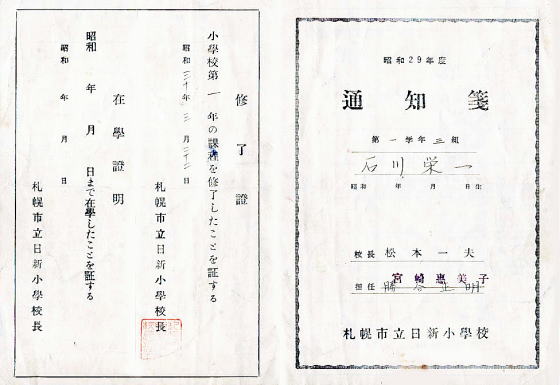 昭和29年度
通知箋
第一学年三組
石川栄一
昭和 年 月 日生
校長 松本一夫
宮崎惠美子
担任 正明
札幌市立日新小學校
修了證
小學校第一年の課程を修了したことを証する
昭和三十年三月 日
札幌市立日新小學校長
在學證明
昭和 年 月 日まで在學したことを証する
昭和 年 月 日
札幌市立日新小學校長